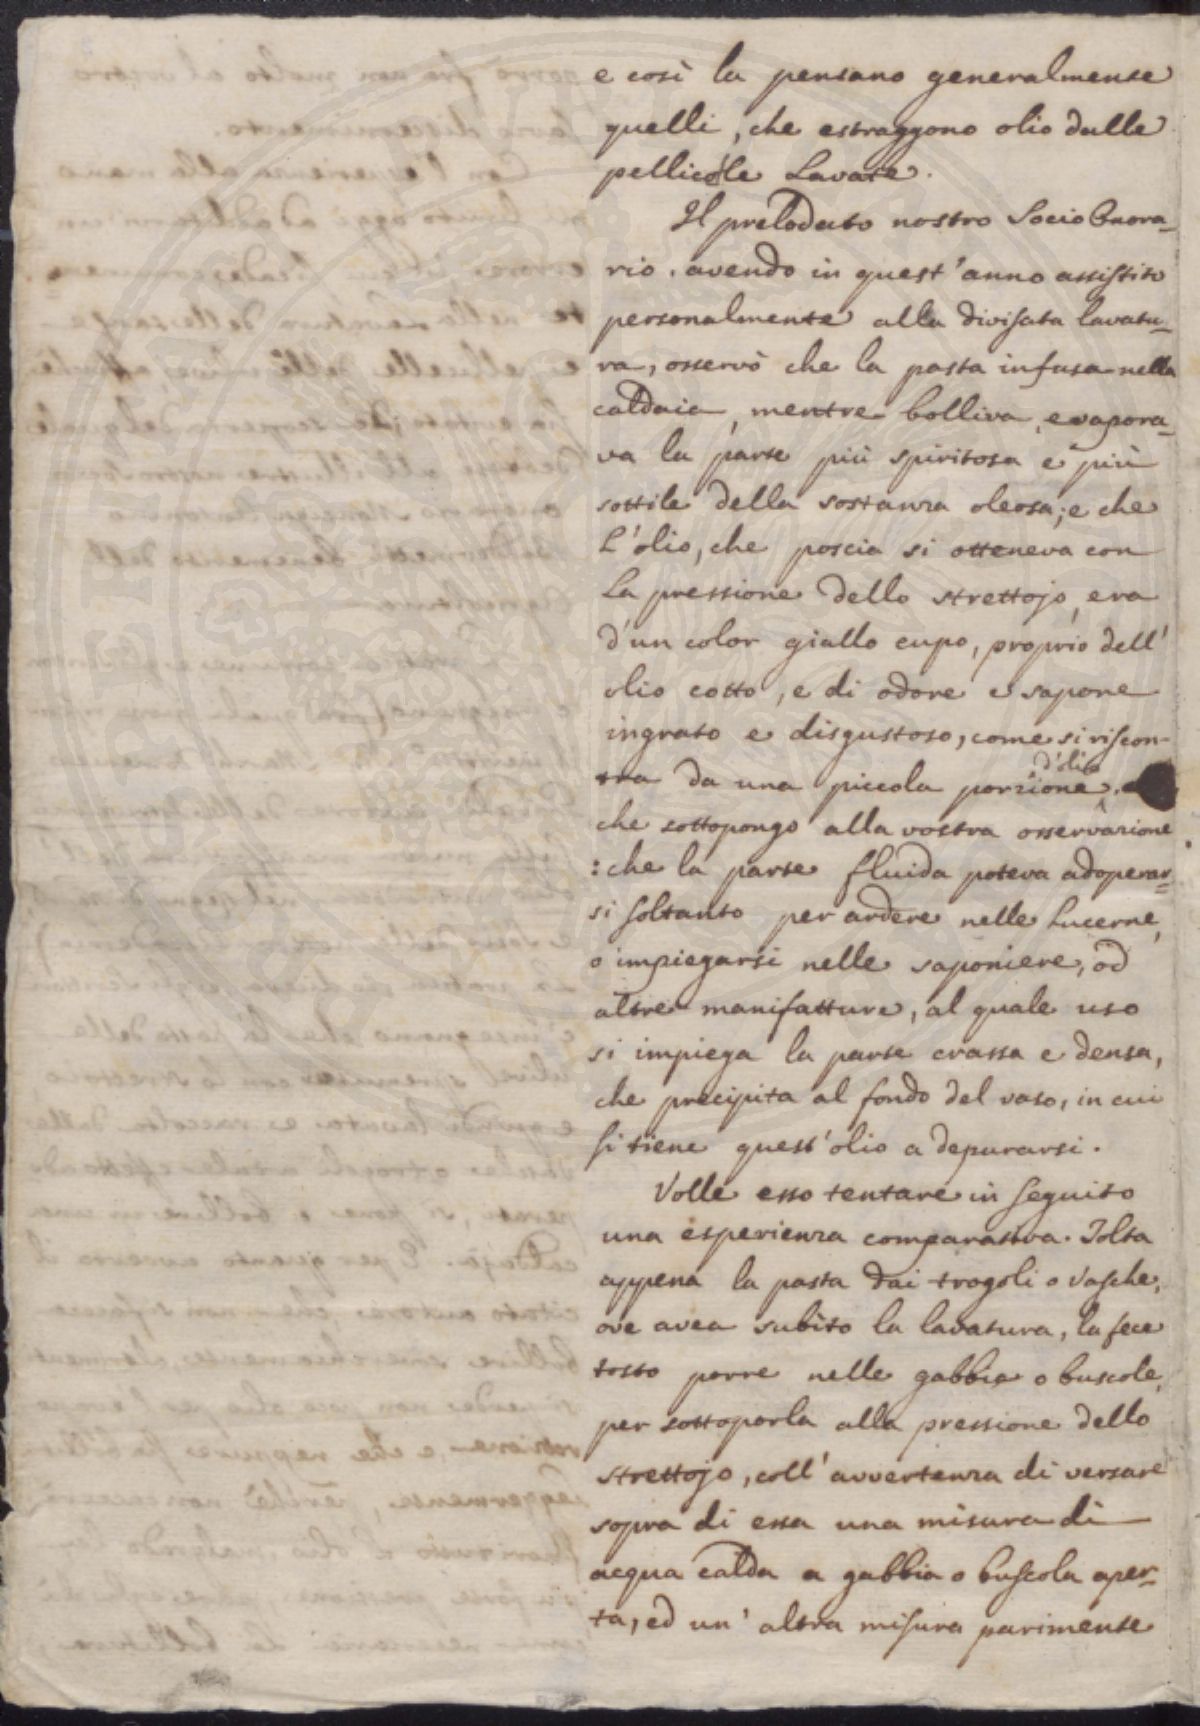 e così la pensano generalmente
quelli, che estraggono olio dalle
pellicole lavate.
Il prelodato nostro Socio Onora-
rio, avendo in quest'anno assistito
personalmente alla divisata lavatu-
ra, osservò che la pasta infusa nella
caldaia, mentre bolliva, evapora-
va la parte più spiritosa e più
sottile della sostanza oleosa; e che
l'olio, che poscia si otteneva con
la pressione dello strettojo, era
d'un color giallo cupo, proprio dell'
olio cotto, e di odore e sapore
ingrato e disgustoso, come si riscon-
tra da una piccola porzione d'olio,
che sottopongo alla vostra osservazione
: che la parte fluida poteva adoperar-
si soltanto per ardere nelle lucerne,
o impiegarsi nelle saponiere, od
altre manifatture, al quale uso
si impiega la parte crassa e densa,
che precipita al fondo del vaso, in cui
si tiene quest'olio a depurarsi.
Volle esso tentare in seguito
una esperienza comparativa. Tolta
appena la pasta dai trogoli o vasche,
ove avea subito la lavatura, la fece
tosto porre nelle gabbie o buscole,
per sottoporla alla pressione dello
strettojo, coll'avvertenza di versare
sopra di essa una misura di
acqua calda a gabbia o buscola aper-
ta, ed un'altra misura parimente